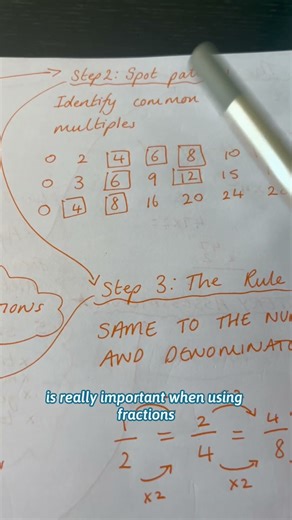 Step 2: Spot
Identify common
multiples
0 2 4 6 8 10
0 3 6 9 12 15
0 4 8 16 20 24
Step 3: The Rule
SAME TO THE
AND
is really important when using
fractions
1/2 = 2/4 = 4/8
x2 x2